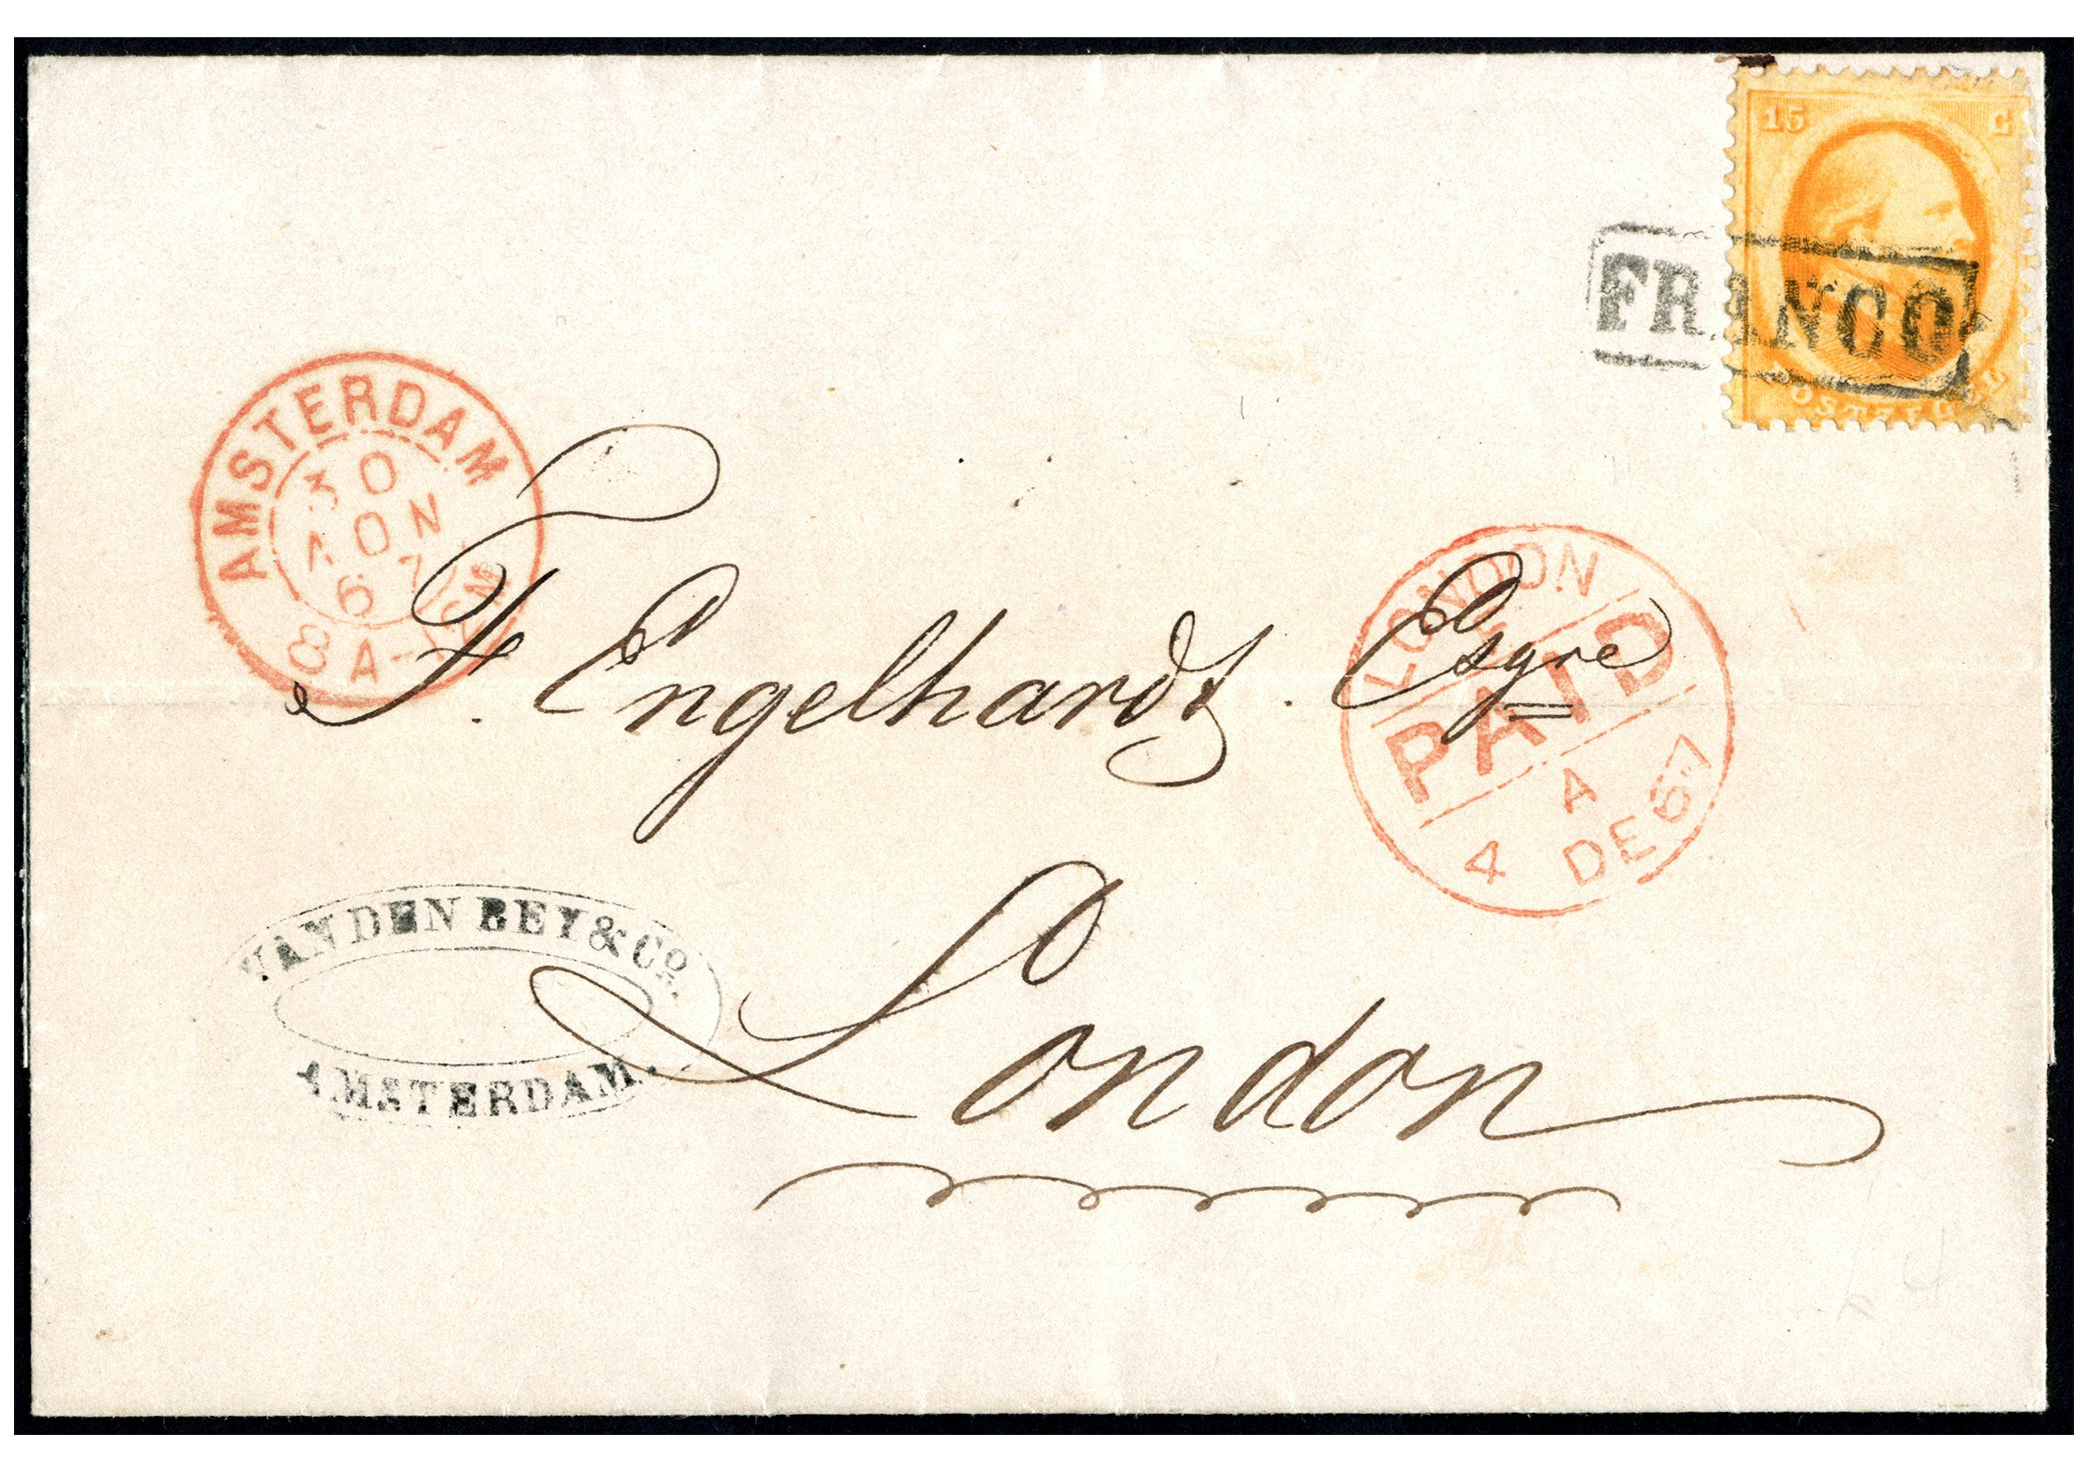 15 C
POSTZEGEL
FRANCO
AMSTERDAM
30
NOV
67
8A-12M
F. Engelhardt. Esqre
LONDON
PAID
A
4 DE 67
VAN DEN BEY & Co.
AMSTERDAM.
London